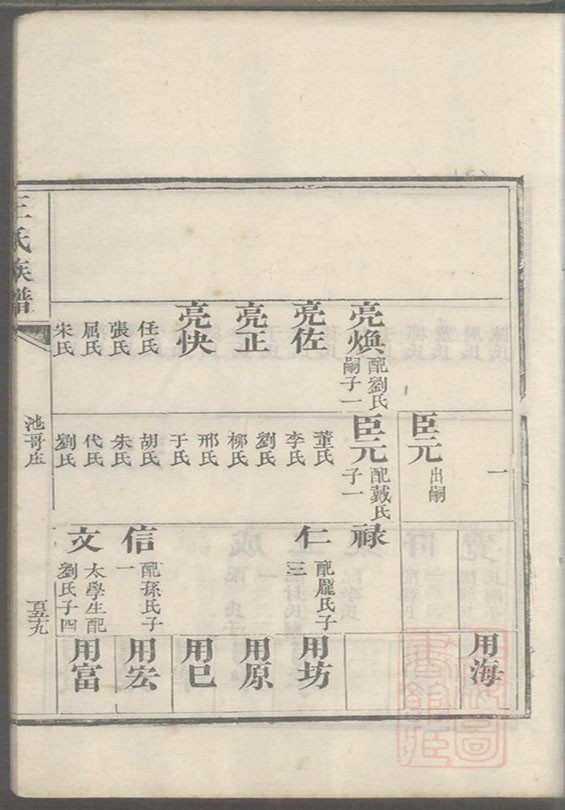 一
亮煥 配劉氏
嗣子一
亮佐
亮正
亮快
任氏
張氏
屈氏
宋氏
臣元 出嗣
臣元 配戴氏
子一
董氏
李氏
劉氏
柳氏
邢氏
于氏
胡氏
朱氏
代氏
劉氏
祿
仁 配龐氏子
三
信 配孫氏子
一
文 太學生配
劉氏子四
用海
用坊
用原
用巳
用宏
用富
王氏族譜
池哥庄
百五十九